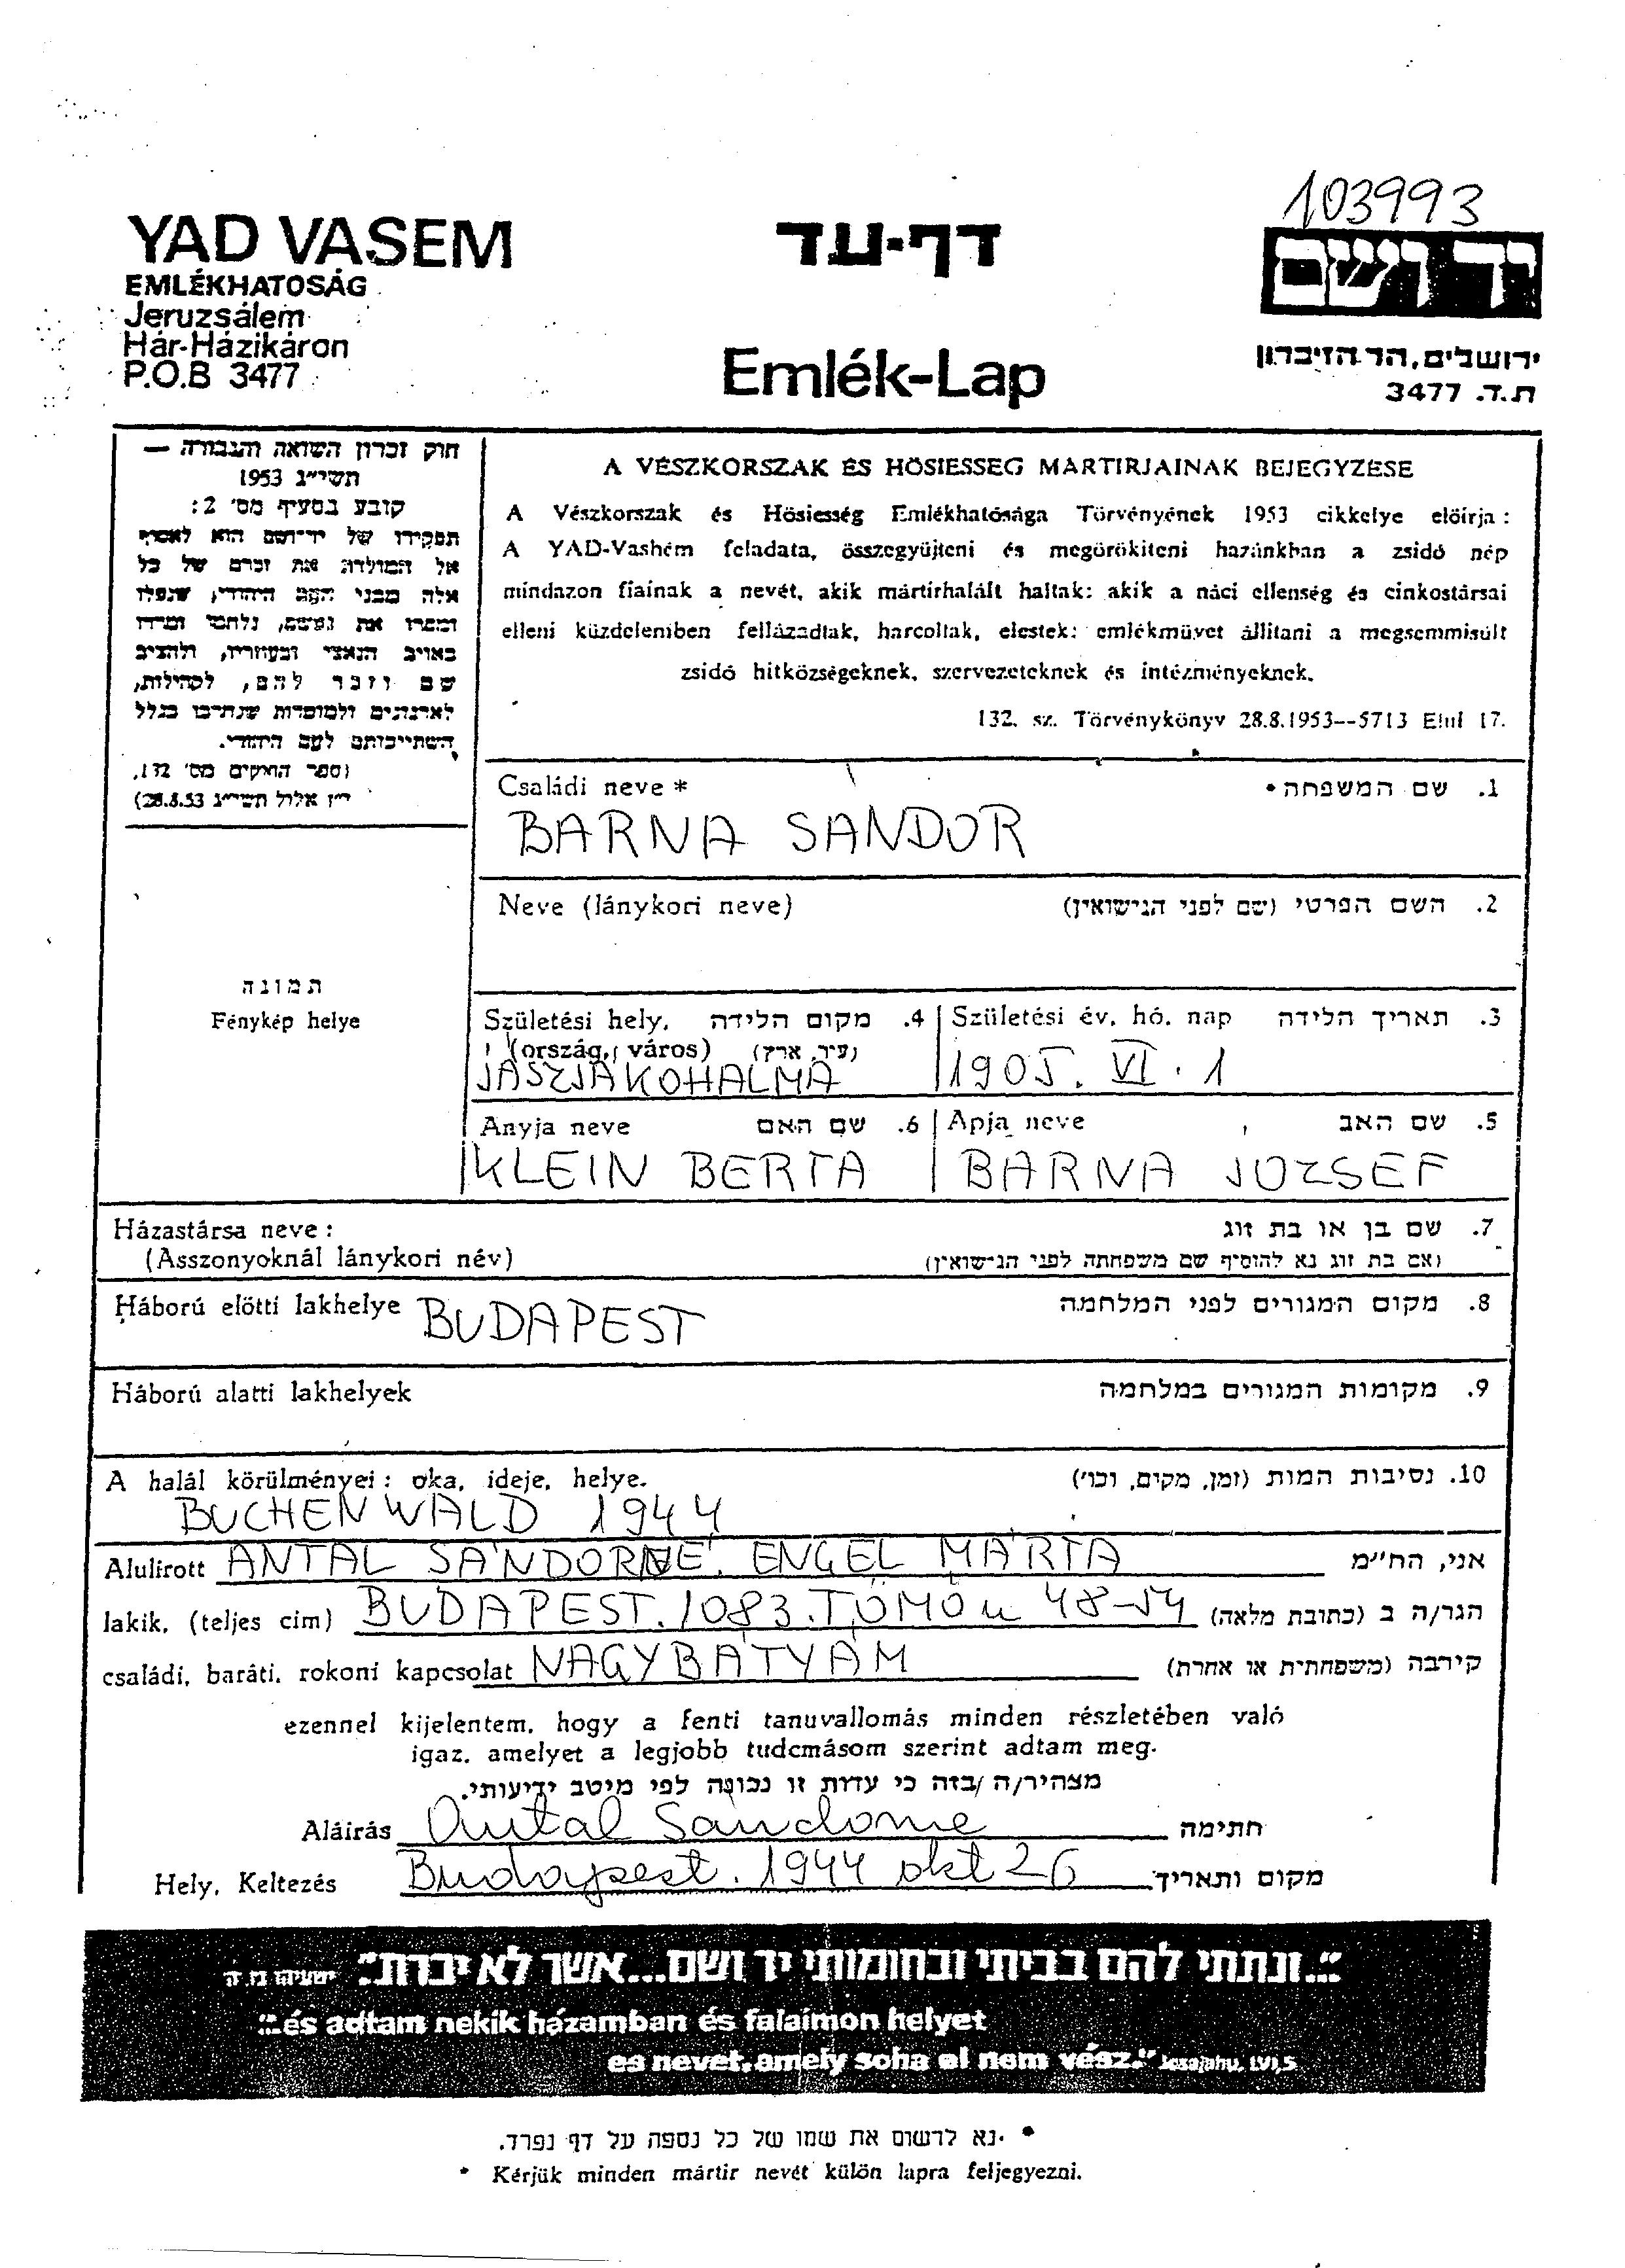 103993
YAD VASEM
EMLÉKHATOSÁG
Jeruzsálem
Hár-Házikáron
P.O.B 3477
דף-עד
Emlék-Lap
יד ושם
ירושלים, הר הזיכרון
ת.ד. 3477
חוק זכרון השואה והגבורה —
תשי״ג 1953
קובע בסעיף מס׳ 2:
תפקידו של יד־ושם הוא לאסוף
אל המולדת את זכרם של כל
אלה מבני העם היהודי, שנפלו
ומסרו את נפשם, נלחמו ומרדו
באויב הנאצי ובעוזריו, ולהציב
שם וזכר להם, לקהילות,
לארגונים ולמוסדות שנחרבו בגלל
השתייכותם לעם היהודי.
(ספר החוקים מס׳ 132,
י״ז אלול תשי״ג 28.8.53)
A VÉSZKORSZAK ÉS HŐSIESSEG MARTIRJAINAK BEJEGYZESE
A Vészkorszak és Hősiesség Emlékhatósága Törvényének 1953 cikkelye előírja :
A YAD-Vashém feladata, összegyüjteni és megörökíteni hazánkban a zsidó nép
mindazon fiainak a nevét, akik mártírhalált haltak: akik a náci ellenség és cinkostársai
elleni küzdelemben fellázadtak, harcoltak, elestek: emlékművet állitani a megsemmisült
zsidó hitközségeknek, szervezeteknek és intézményeknek.
132. sz. Törvénykönyv 28.8.1953--5713 Elul 17.
Családi neve * 1. שם המשפחה*
BARNA SANDOR
Neve (lánykori neve) 2. השם הפרטי (שם לפני הנישואין)
תמונה
Fénykép helye
Születési hely, 4. מקום הלידה
(ország, város) (עיר, ארץ)
JÁSZJÁKOHALMA
Születési év, hó, nap 3. תאריך הלידה
1905. VI. 1
Anyja neve 6. שם האם
KLEIN BERTA
Apja neve 5. שם האב
BARNA JOZSEF
Házastársa neve : 7. שם בן או בת זוג
(Asszonyoknál lánykori név) (אם בת זוג נא להוסיף שם משפחתה לפני הנישואין)
Háború előtti lakhelye BUDAPEST 8. מקום המגורים לפני המלחמה
Háború alatti lakhelyek 9. מקומות המגורים במלחמה
A halál körülményei : oka, ideje, helye. 10. נסיבות המות (זמן, מקום, וכו׳)
BUCHENWALD 1944
Alulirott ANTAL SÁNDORNÉ. ENGEL MÁRTA אני, הח״מ
lakik, (teljes cim) BUDAPEST. 1083. TÖMŐ u 48-54 הגר/ה ב (כתובת מלאה)
családi, baráti, rokoni kapcsolat NAGYBÁTYÁM קירבה (משפחתית או אחרת)
ezennel kijelentem, hogy a fenti tanuvallomás minden részletében való
igaz, amelyet a legjobb tudomásom szerint adtam meg.
מצהיר/ה /בזה כי עדות זו נכונה לפי מיטב ידיעותי.
Aláírás Antal Sandorne חתימה
Hely, Keltezés Budapest. 1944 okt 26 מקום ותאריך
"...ונתתי להם בביתי ובחומותי יד ושם...אשר לא יכרת" ישעיהו נו ה
"...és adtam nekik házamban és falaimon helyet
es nevet, amely soha el nem vész." Jesajahu, LVI,5
* נא לרשום את שמו של כל נספה על דף נפרד.
* Kérjük minden mártir nevét külön lapra feljegyezni.